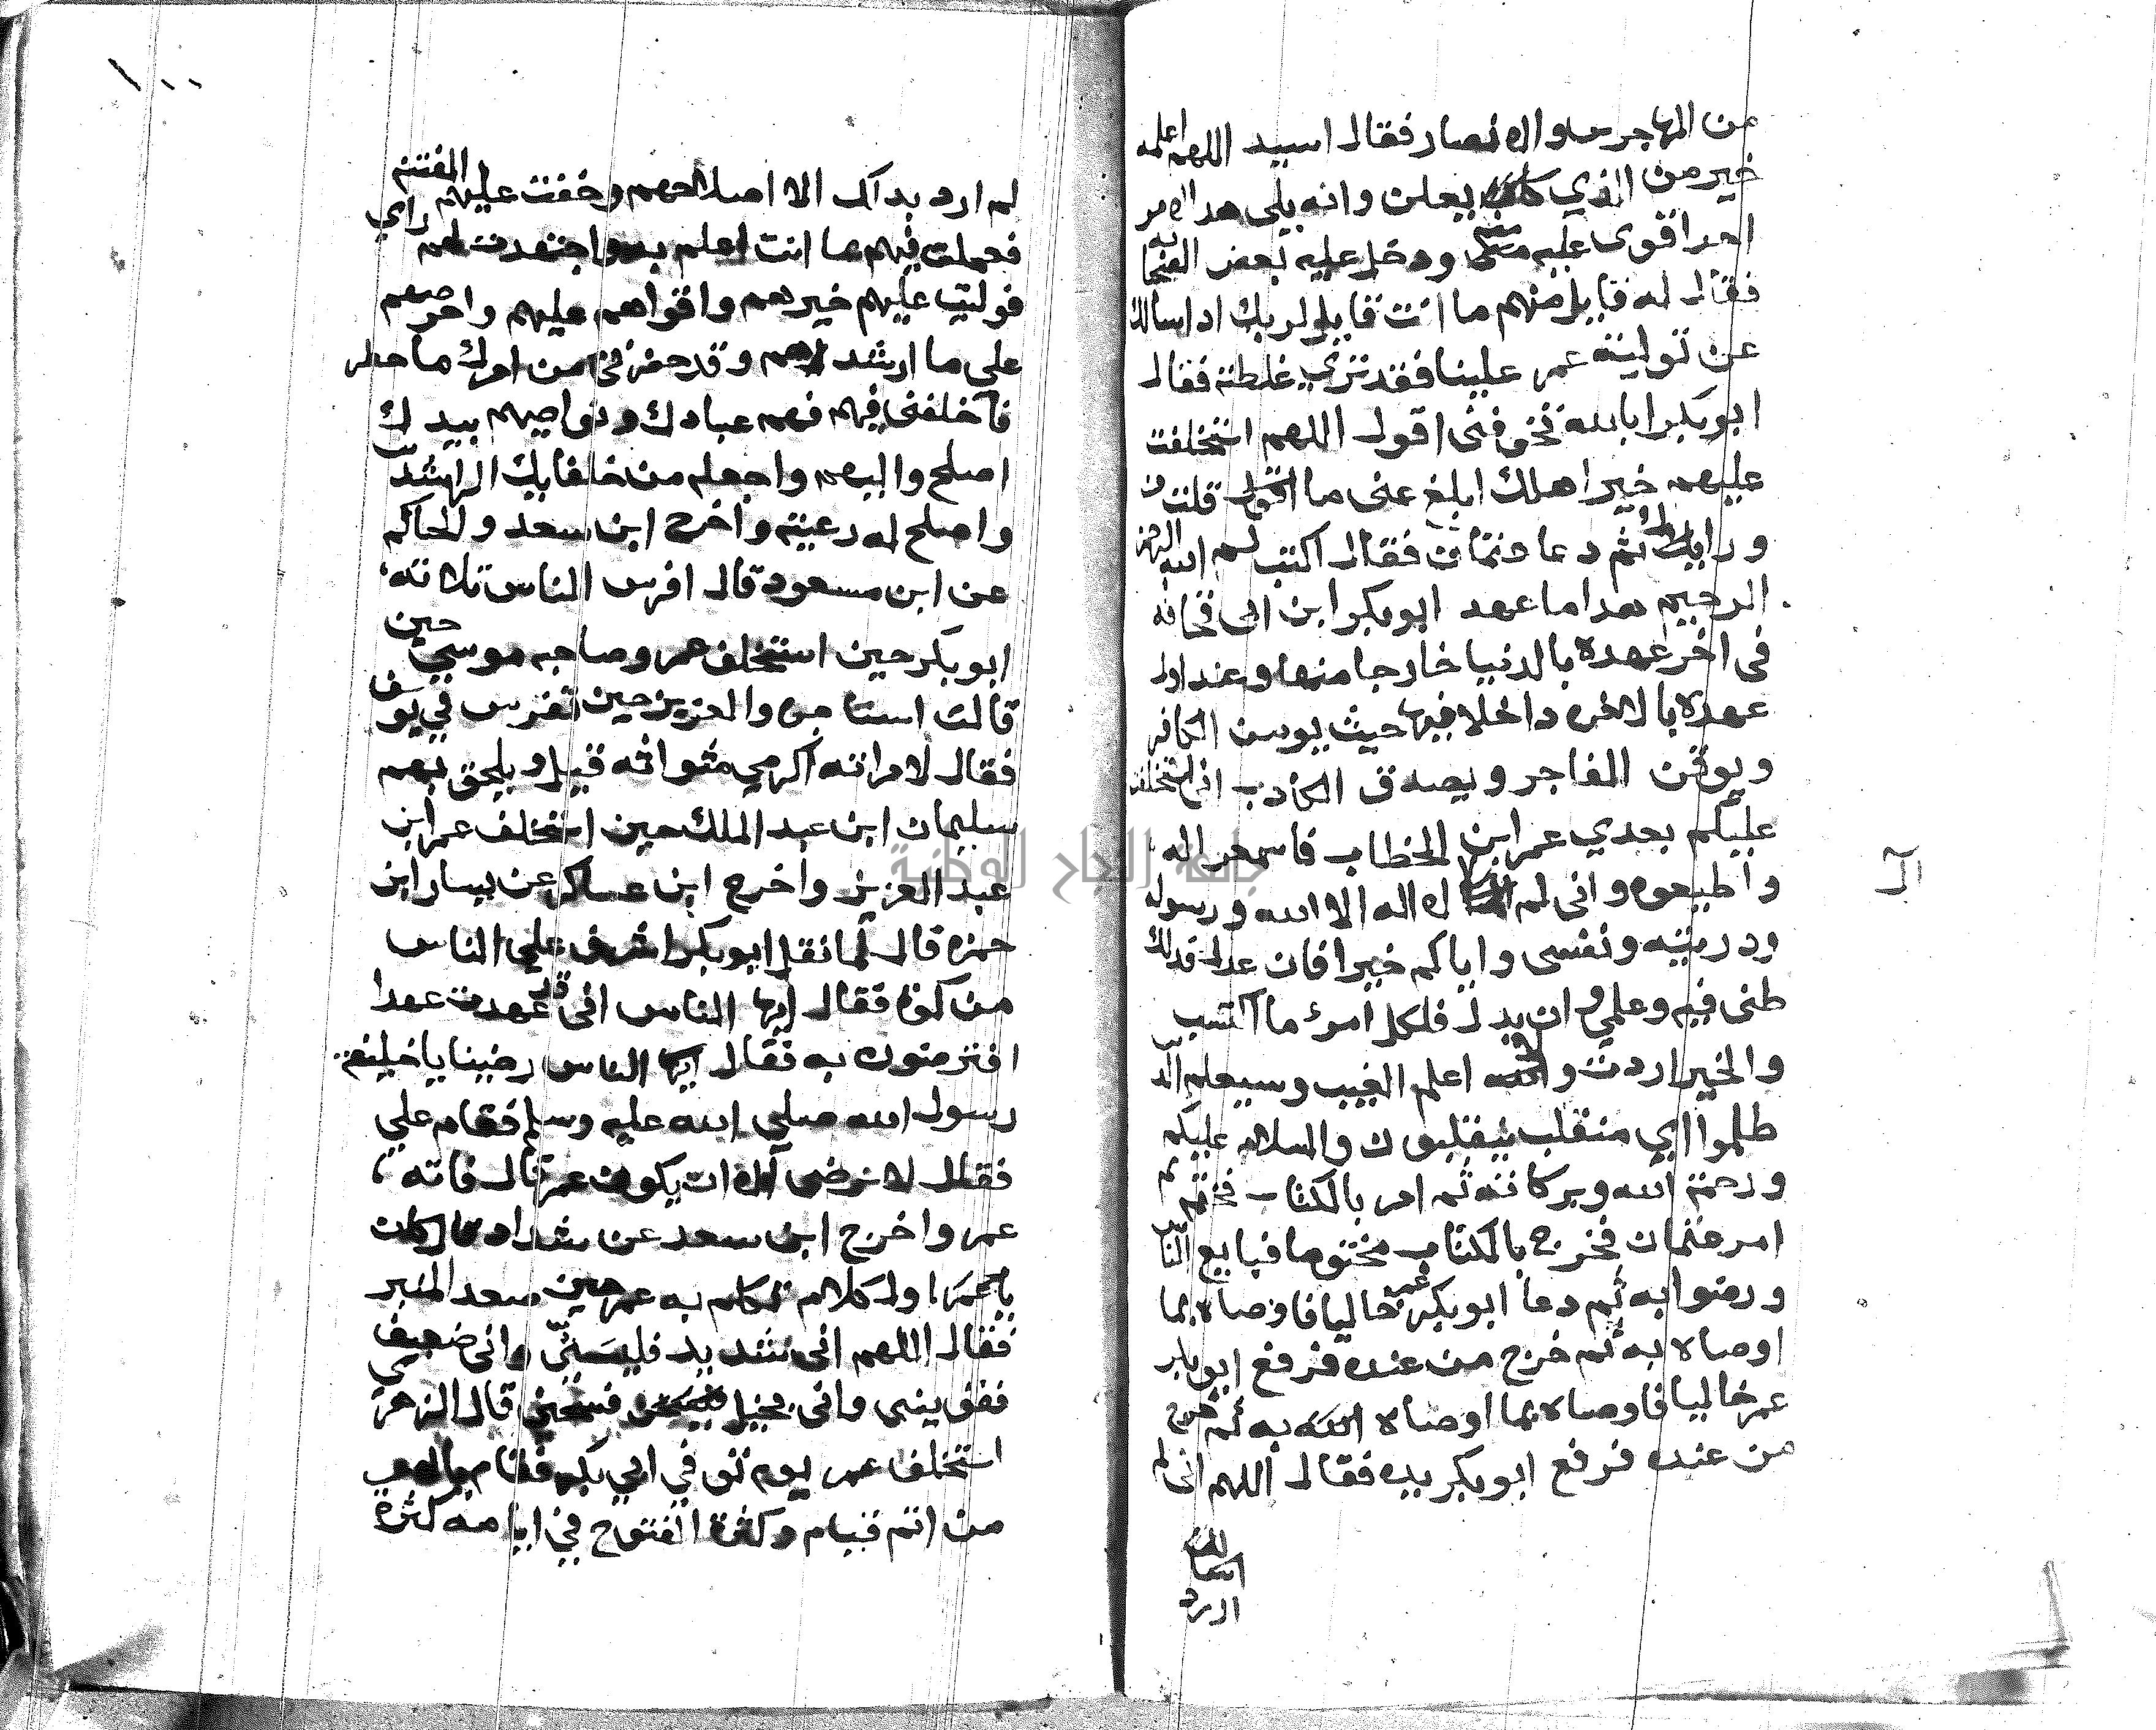 من المهاجرين والانصار فقال اسيد اللهم اعلمه
خير من الذي يعلن وانه يلى هدا الامر
احد اقوى عليه منه ودخل عليه بعض الصحابه
فقال له قايل منهم ما انت قايل لربك اذا سالك
عن توليته عمر علينا فقد ترى غلظته فقال
ابو بكر ابالله تخوفنى اقول اللهم استخلفت
عليهم خير اهلك ابلغ عنى ما اقول قلت من
ورايك ثم دعا عثمان فقال اكتب بسم الله الرحمن
الرحيم هدا ما عهد ابو بكر ابن ابى قحافه
فى اخر عهده بالدنيا خارجا منها وعند اول
عهده بالاخره داخلا فيها حيث يومن الكافر
ويوقن الفاجر ويصدق الكادب انى استخلفت
عليكم بعدي عمر ابن الخطاب فاسمعوا له
واطيعوه وانى لم ال اله الا الله ورسوله
ودينه ونفسى واياكم خيرا فان عدل فدلك
ظنى فيه وعلمي وان بدل فلكل امرئ ما اكتسب
والخير اردت ولا اعلم الغيب وسيعلم الد
ظلموا اي منقلب ينقلبون والسلام عليكم
ورحمة الله وبركاته ثم امر بالكتاب فختم ثم
امر عثمان فخرج بالكتاب مختوما فبايع الناس
ورضوا به ثم دعا ابو بكر عمر خاليا فاوصاه بما
اوصاه به ثم خرج من عنده فرفع ابو بكر
عمر خاليا فاوصاه بما اوصاه الله به ثم خرج
من عنده فرفع ابو بكر يده فقال اللهم انى لم
ال
١٠٠
لم ارد بدلك الا اصلاحهم وخفت عليهم الفتنة
فعملت فيهم بما انت اعلم به واجتهدت لهم راي
فوليت عليهم خيرهم واقواهم عليهم واحرصهم
علي ما ارشدهم وقد حضرنى من امرك ما حضر
فاخلفنى فيهم فهم عبادك ونواصيهم بيدك
اصلح واليهم واجعله من خلفايك الراشدين
واصلح له رعيته واخرج ابن سعد والحاكم
عن ابن مسعود قال افرس الناس ثلاثه
ابو بكر حين استخلف عمر وصاحبه موسي حين
قالت استاجره والعزيز حين تفرس في يوسف
فقال لامراته اكرمي مثواه قيل ويلحق بهم
سليمان ابن عبد الملك حين استخلف عمر ابن
عبد العزيز واخرج ابن عساكر عن يسار ابن
حمزه قال لما ثقل ابو بكر اشرف علي الناس
من كوه فقال ايها الناس انى قد عهدت عهدا
افترضون به فقال ايها الناس رضينا يا خليفة
رسول الله صلي الله عليه وسلم فقام علي
فقال لا نرضى الا ان يكون عمر قال فانه
عمر واخرج ابن سعد عن شداد قال كان
اول كلام تكلم به عمر حين صعد المنبر
فقال اللهم انى شديد فليني وانى ضعيف
فقوينى وانى بخيل فسخني قال الزهري
استخلف عمر يوم توفي ابي بكر فقام بالامر
من اتم قيام وكثرة الفتوح في ايامه كثرة